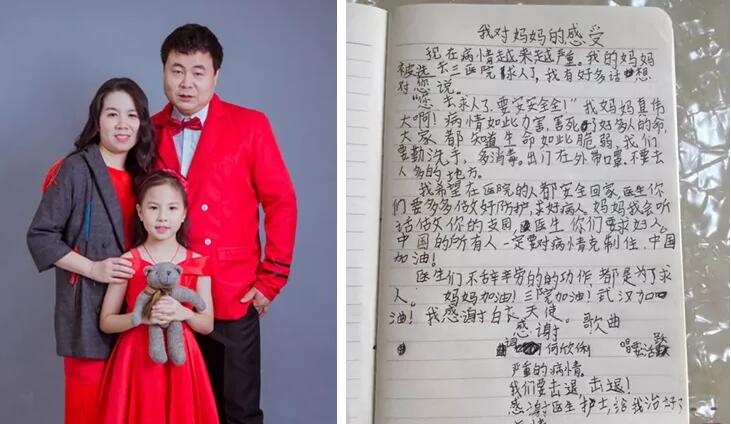 我对妈妈的感受
现在病情越来越严重。我的妈妈
被选去三医院【求人】,我有好多话想
对您说。
"您去求人了,要安安全全!"我妈妈真伟
大啊!病情如此力害,害死了好多人的命,
大家都知道生命如此脆弱,我们
要勤洗手,多消毒。出门在外带口罩,不要去
人多的地方。
我希望在医院的人都安全回家,医生你
们要多多做好防护,求好病人。妈妈我会听
话做好你的支园,医生你们要求妇人。
中国的所有人一定要对病情克制住,中国
加油!
医生们不辞辛劳的的功作,都是为了求
人。 妈妈加油!三院加油!武汉加
油!我感谢白衣天使。 歌曲
感谢
词 何欣俐 唱
严重的病情。
我们要击退,击退!
感谢医生护士,给我治好了